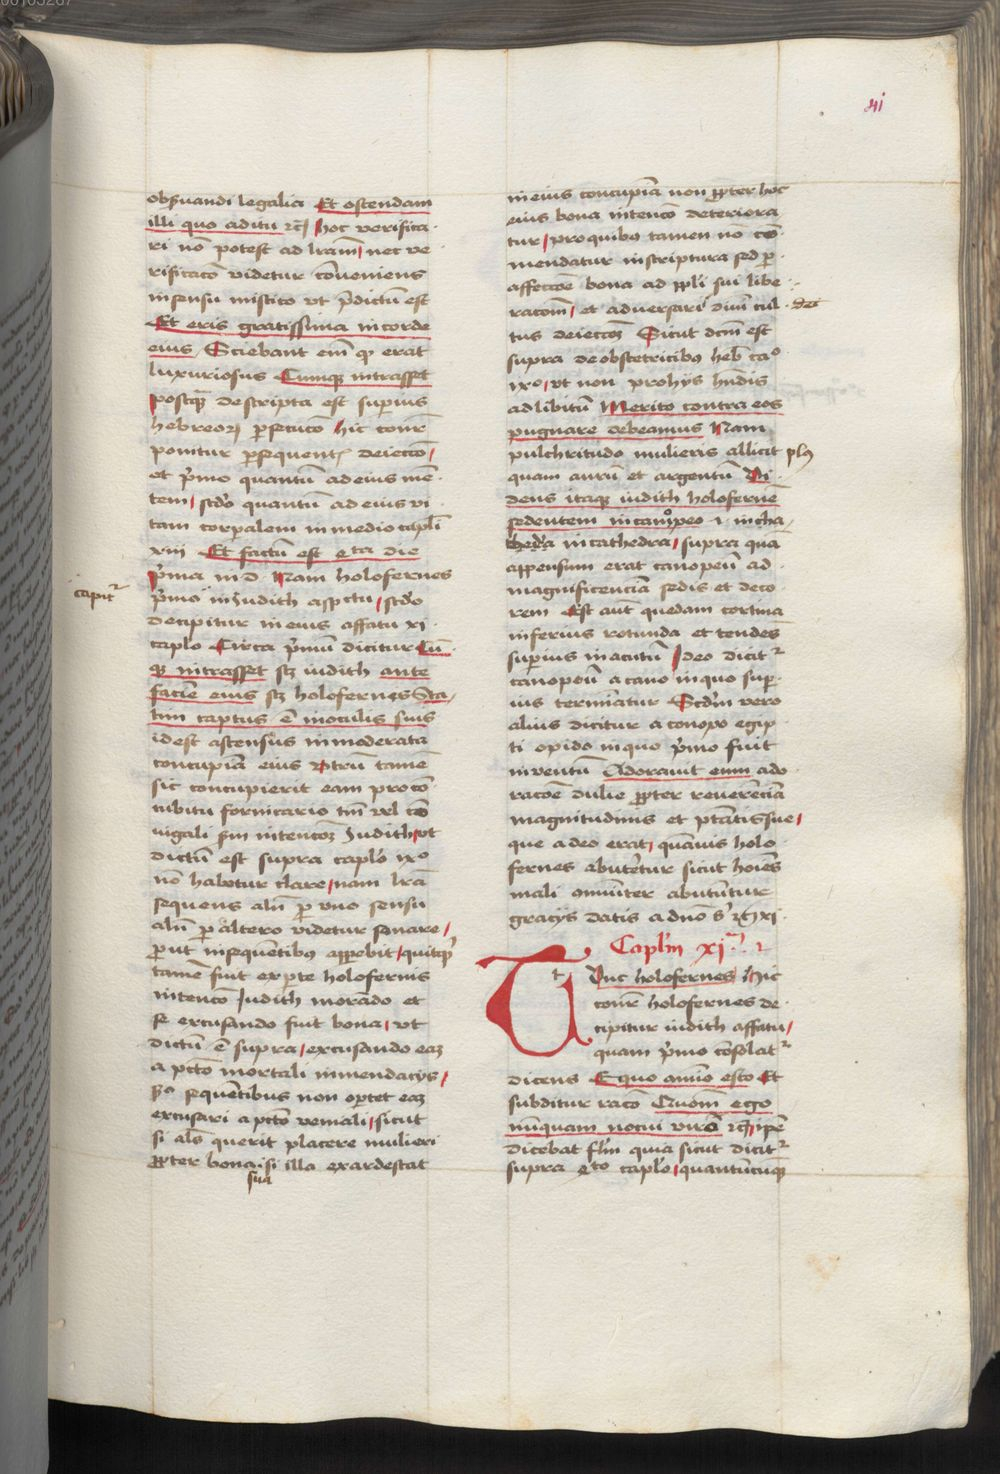 00105267
xi
obseruandi legalia Et ostendam
illi quo aditu &c̄ hoc verifica
ri nō potest ad lr̄am nec ve
rificacō videtur cōueniens
in sensu mistico vt p̄dictū est
Et eris gratissima in corde
eius Sciebant em̄ qꝫ erat
luxuriosus Cumqꝫ intrasset
postqꝫ descripta est superius
hebreoꝝ persecuco hic conr̄
ponitur persequent deieccō
et p̄mo quantū ad eius mē
tem scd̓o quantū ad eius vi
tam corpalem in medio capli
xiii Et factū est qta die
p̄ma in d Nam holofernes
capit̄ 
p̄mo in Judith aspectu scd̓o
decipitur in eius affatu xi
caplo Circa p̄mū dicitur Cū
qꝫ intrasset scꝫ iudith ante
faciē eius scꝫ holofernes Sta
tim captus ē in oculis suis
id est astensus inmoderata
concupīa eius vtrū tamē
sic concupierit eam pro cō
cubitu fornicario tm̄ vel cō
iugali scdm intencōꝫ Judith vt
dictū est supra caplo ixo
nō habetur clare nam lr̄a
sequens aln̄ per vno sensu
aln̄ per altero videtur sonare
prout in sequentibꝫ apparebit quicqꝫ
tamē fuit ex parte holofernis
intencō Judith morādo et
se excusando fuit bona vt
dictū ē supra excusando eaꝫ
a pctō mortali in mendacijs
in sequētibus non oportet eaꝫ
excusari a pctō veniali sicut
si als querit placere mulieri
propter bona si illa exardescat
sua
in eius concupīa non propter hoc
eius bona intencō deteriora
tur pro quibus tamen nō cō
mendatur in scriptura sed per
affectōe bona ad ppli sui libe
racoīm et aduersarī diui cul dei
tus deieccōꝫ Sicut dcm̄ est
supra de obstetricibꝫ heb cao
ixo vt non pro hijs hn̄dis
ad libitū Merito contra eos
pugnare debeamus Nam
pulchritudo mulieris allicit plꝰ
quam aurū et argentū Vi
dens itaqꝫ iudith holofernē
sedentem in canopeo .i. in cha
thedra in cathedra supra quā
appensum erat canopeū ad
magnificenciam sedis et deco
rem Est aut quedam cortina
inferius rotunda et tendēs
superius in acutū Ideo dicit̄
canopeū a cano in quo supe
ius terminatur Scd̓m vero
alius dicitur a conopo egip
ti opido in quo p̄mo fuit
inuentū Adorauit eum ado
racōe dulie propter reuerēciā
magnitudinis et ptātis sue
que a deo erat quāuis holo
fernes abutētur sicut hoīes
mali omūiter abutūntur
gracijs datis a dn̄o &c̄ xi
Caplm xim
t
Tunc holofernes Hic
conr̄ holofernes de
cipitur iudith affatu
quam p̄mo cōsolat̄
dicens Equo amio esto Et
subditur racō Qm̄ ego
nūquam nocui virō &c̄ ipē
dicebat flm quia sicut dicit̄
supra qto caplo quantūcūqꝫ